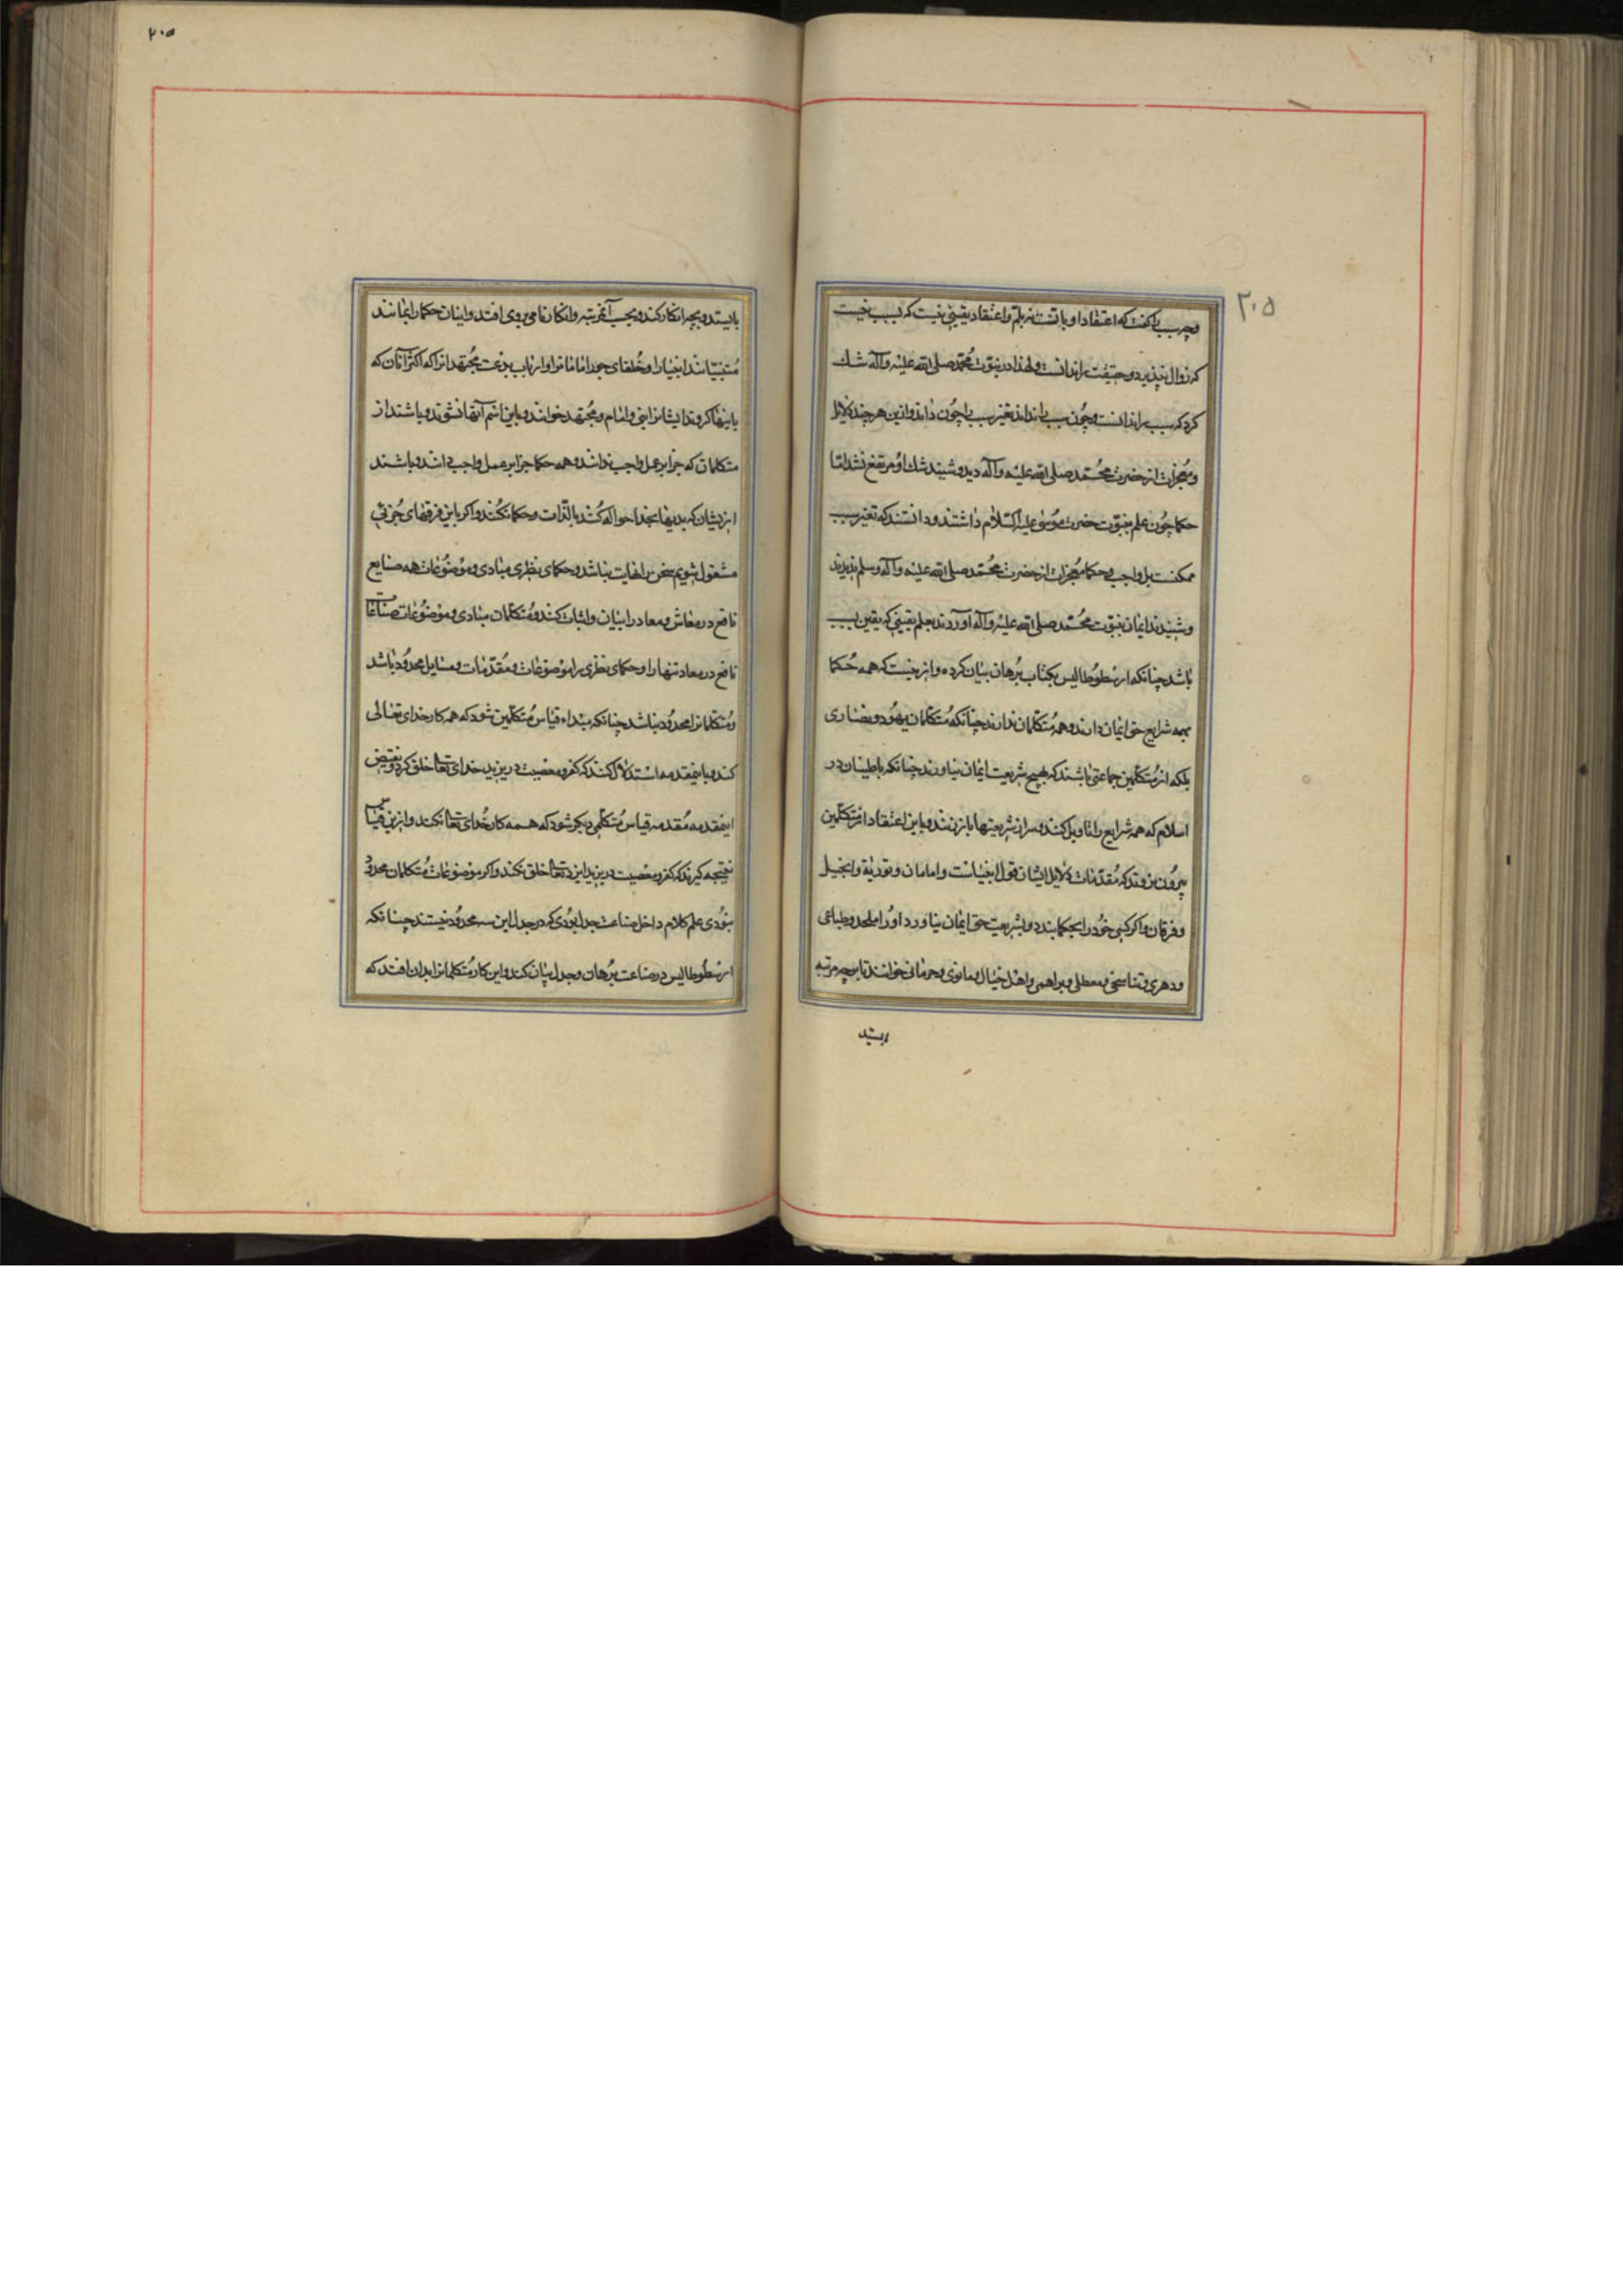 ۲۰۵
و چه سبب گفت که اعتقاد او بانست نه بلم و اعتقاد یقینی نیست که بسبب نیست
که زوال نپذیرد و حقیقت را ندانست و لهذا در نبوّت محمّد صلی الله علیه وآله شک
کرد که سبب را ندانست و چون سبب را نداند تغیر سبب را چون داند و ازین هر چند دلایل
و معجزات از حضرت محمّد صلی الله علیه وآله دید و شنید شک او مرتفع نشد امّا
حکما چون علم بنبوّت حضرت موسی علیه السّلام داشتند و دانستند که تغیر سبب
ممکنست بل واجب و حکما معجزات از حضرت محمّد صلی الله علیه وآله وسلم دیدند
و شنیدند ایمان بنبوّت محمّد صلی الله علیه وآله آوردند بعلم یقینی که یقین بسبب
باشد چنانکه ارسطوطالیس بکتاب برهان بیان کرده و ازینست که همه حکما
بهمه شرایع حق ایمان دارند و همه متکلمان ندارند چنانکه متکلمان یهود و نصاری
بلکه از متکلّمین جماعتی باشند که بهیچ شریعت ایمان نیاورند چنانکه باطنیان در
اسلام که همه شرایع را تاویل کنند و سر از شریعتها باز زنند و باین اعتقاد از متکلّمین
بیرون نروند که مقدّمات دلایل ایشان قول انبیاست و امامان و توریة و انجیل
و فرقان و اگر کسی خود را بحکما بندد و بشریعت حق ایمان نیاورد او را ملحد و طباعی
و دهری و تناسخی و معطلی و براهمی و اهل خیال و مانوی و حرمانی خوانند تا بر چه مرتبه
بایستد
۲۰۵
بایستد و بچه انکار کند و بحسب آنمرتبه و انکار نامی بروی افتد و اینان حکما را بمانند
متنبّیانند انبیا را و خلفای جور امامانرا و ارباب بدعت مجتهدانرا که اکثر آنان که
باینها گروند ایشانرا نبی و امام و مجتهد خوانند و باین اسم آنها نشوند و باشند از
متکلمان که جزا بر عمل واجب ندانند و همه حکما جزا بر عمل واجب دانند و باشند
ازیشان که بدیها بخدا حواله کنند بالذّات و حکما نکنند و اگر باین فرقهای جزئی
مشغول شویم سخن را نهایت نباشد و حکمای نظری مبادی و موضوعات همه صنایع
نافع در معاش و معاد را بیان و اثبات کنند و متکلّمان مبادی و موضوعات صناعات
نافع در معاد تنها را و حکمای نظری را موضوعات و مقدّمات و مسایل محدود باشد
و متکلمانرا محدود نباشد چنانکه مبداء قیاس متکلّمین شود که همه کار خدای تعالی
کند و باینمقدمه استدلال کنند که کفر و معصیت در یزید خدای تعالی خلق کرد و نقیض
اینمقدمه مقدمه قیاس متکلّمی دیگر شود که همه کار خدای تعالی نکند و ازین قیاس
نتیجه گیرند که کفر و معصیت در یزید ایزد تعالی خلق نکند و اگر موضوعات متکلمان محدود
بودی علم کلام داخل صناعت جدل بودی که در جدل این سه محدود نیستند چنانکه
ارسطوطالیس در صناعت برهان و جدل بیان کند و این کار متکلمانرا بدان افتد که